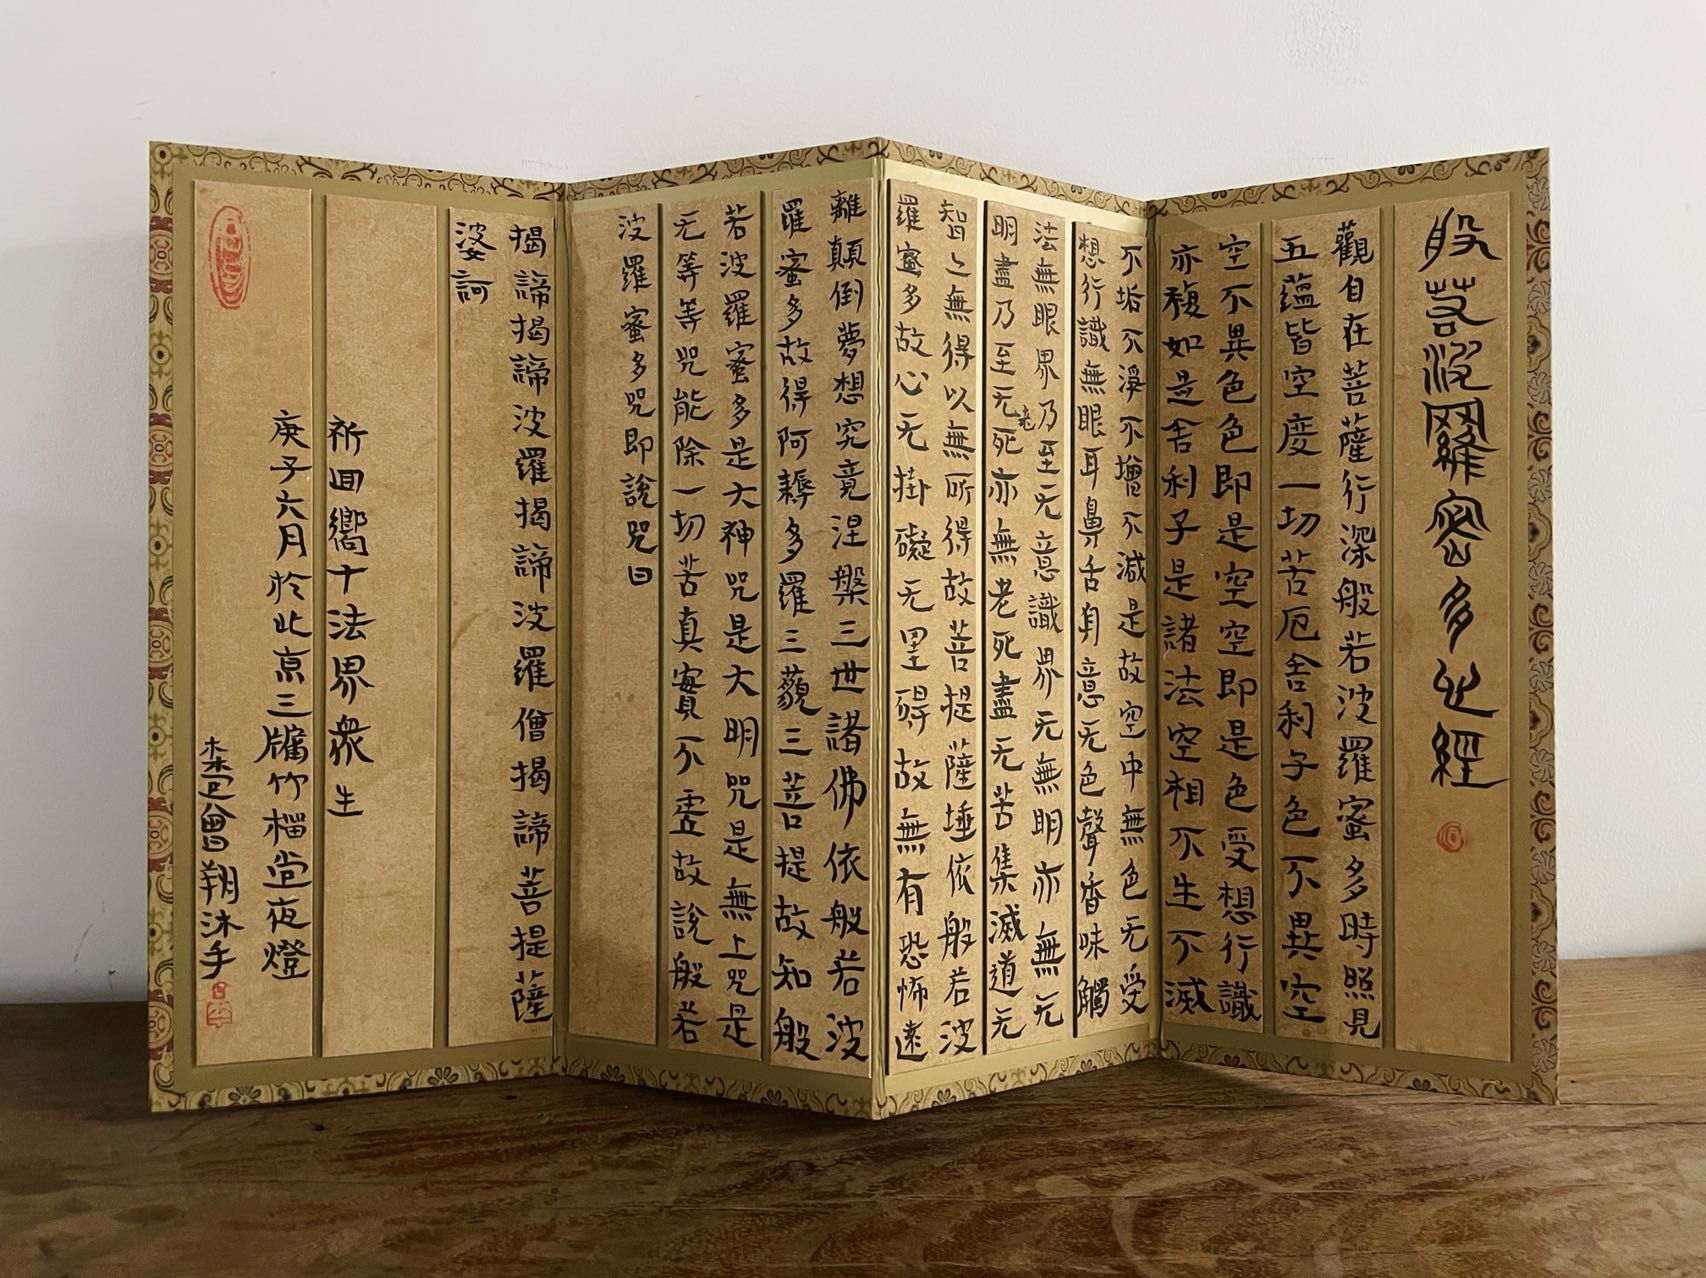 般若波羅密多心經
觀自在菩薩行深般若波羅蜜多時照見
五蘊皆空度一切苦厄舍利子色不異空
空不異色色即是空空即是色受想行識
亦複如是舍利子是諸法空相不生不滅
不垢不淨不增不減是故空中無色无受
想行識無眼耳鼻舌身意无色聲香味觸
法無眼界乃至无意識界无無明亦無无
明盡乃至无老死亦無老死盡无苦集滅道无
智無得以無所得故菩提薩埵依般若波
羅蜜多故心无掛礙无罣碍故無有恐怖遠
離顛倒夢想究竟涅槃三世諸佛依般若波
羅蜜多故得阿耨多羅三藐三菩提故知般
若波羅蜜多是大神咒是大明咒是無上咒是
无等等咒能除一切苦真實不虛故說般若
波羅蜜多咒即說咒曰
揭諦揭諦波羅揭諦波羅僧揭諦菩提薩
婆訶
祈回嚮十法界眾生
庚子六月於北京三牖竹榴堂夜燈
曾翔沐手